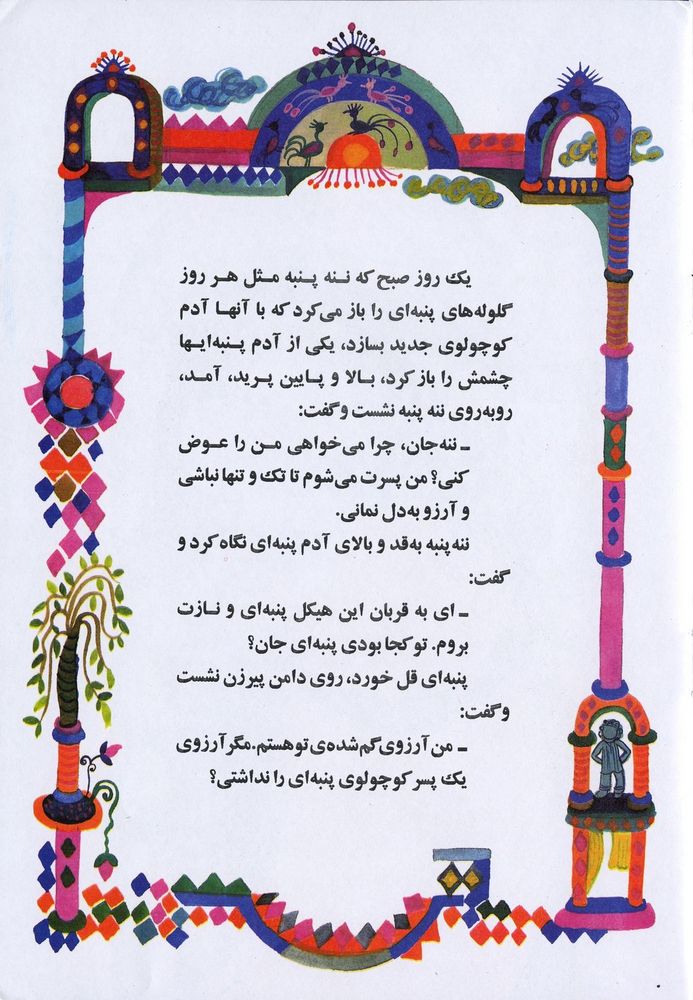 یک روز صبح که ننه پنبه مثل هر روز
گلوله‌های پنبه‌ای را باز می‌کرد که با آنها آدم
کوچولوی جدید بسازد، یکی از آدم پنبه‌ایها
چشمش را باز کرد، بالا و پایین پرید، آمد،
روبه‌روی ننه پنبه نشست و گفت:
ـ ننه‌جان، چرا می‌خواهی من را عوض
کنی؟ من پسرت می‌شوم تا تک و تنها نباشی
و آرزو به‌دل نمانی.
ننه‌پنبه به‌قد و بالای آدم پنبه‌ای نگاه کرد و
گفت:
ـ ای به قربان این هیکل پنبه‌ای و نازت
بروم. تو کجا بودی پنبه‌ای جان؟
پنبه‌ای قل خورد، روی دامن پیرزن نشست
و گفت:
ـ من آرزوی گم‌شده‌ی تو هستم. مگر آرزوی
یک پسر کوچولوی پنبه‌ای را نداشتی؟